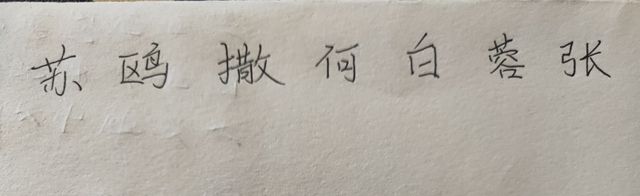 苏 鸥 撒 何 白 蓉 张